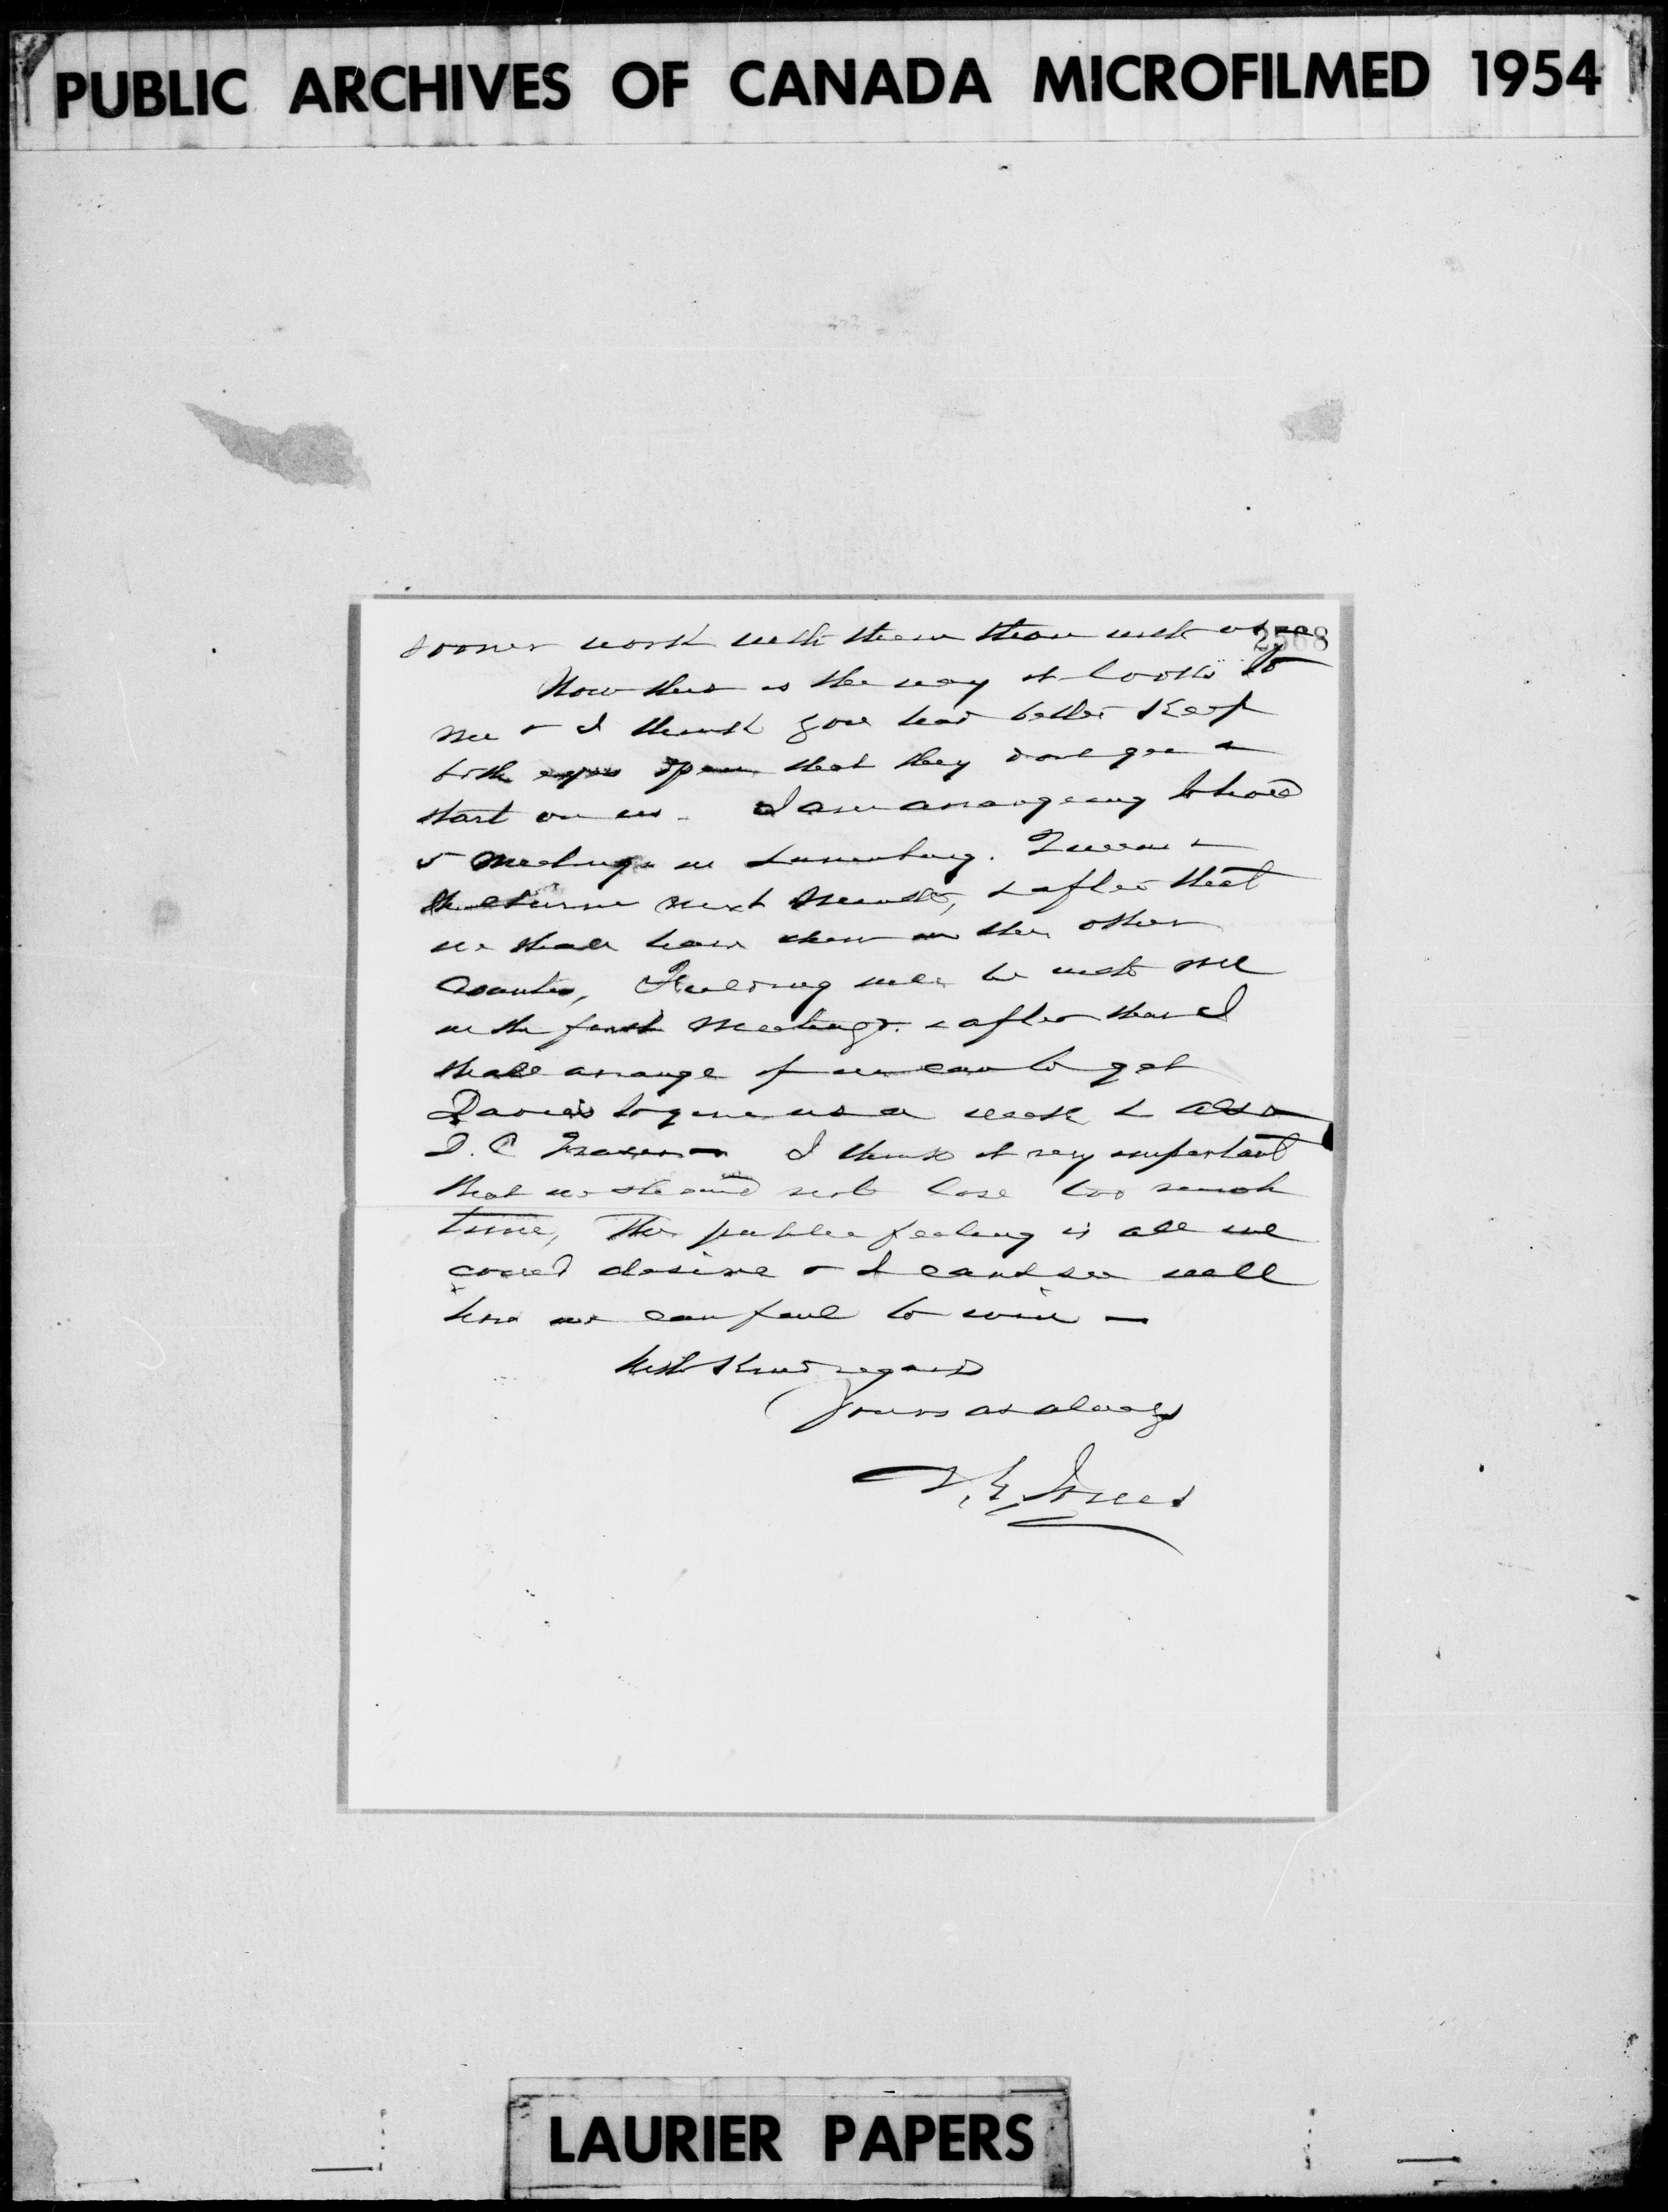 PUBLIC ARCHIVES OF CANADA MICROFILMED 1954
2568
sooner work with them than with us
Now this is the way it looks to
me & I think you had better keep
both eyes open that they dont get a
start on us. I am arrangeing to hold
5 meetings in Lunenburg. Queens &
Shelburne next month, & after that
we shall have them in the other
Counties, Fielding will be with me
in the first meetings. & after that I
shall arrange if we can to get
Davies to give us a week & also
D. C Fraser — I think it very important
that we should not lose too much
time, The public feeling is all we
could desire & I cant see well
how we can fail to win —
With kind regards
Yours as always
A. G. Jones
LAURIER PAPERS